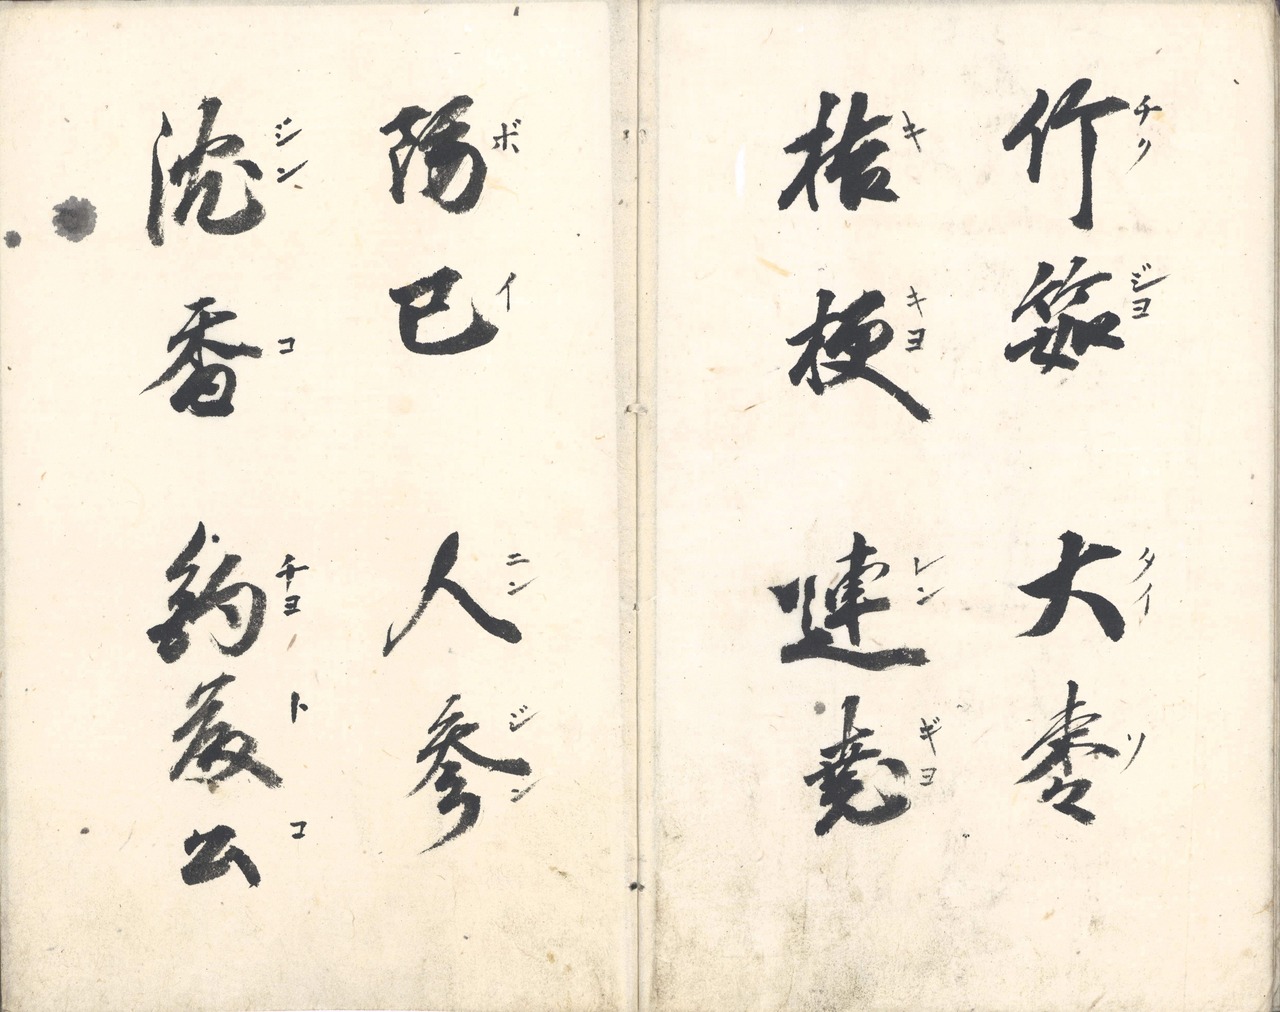 竹筎　大棗
チク ジヨ タイ ソ
桔梗　連堯
キ キヨ レン ギヨ
防已　人参
ボ イ ニン ジン
沈香　釣藤公
ジン コ チヨ ト コ